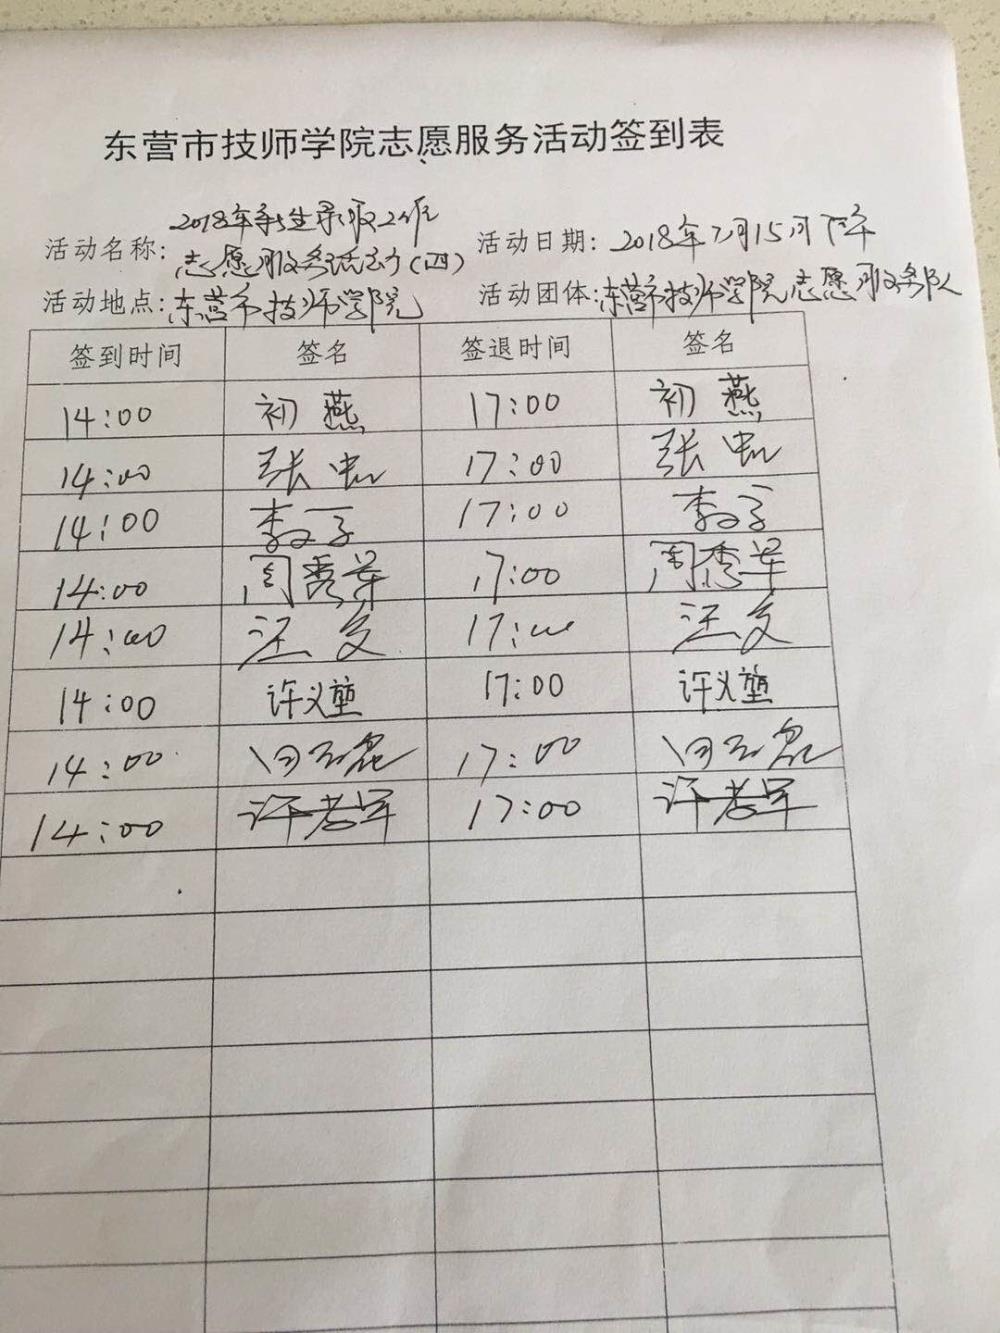 东营市技师学院志愿服务活动签到表
活动名称: 2018年新生录取工作 志愿服务活动(四) 活动日期: 2018年7月15日下午
活动地点: 东营市技师学院 活动团体: 东营市技师学院志愿服务队
签到时间 签名 签退时间 签名
14:00 初燕 17:00 初燕
14:00 张虹 17:00 张虹
14:00 李 17:00 李
14:00 周秀军 17:00 周秀军
14:00 汪 17:00 汪
14:00 许义堃 17:00 许义堃
14:00 17:00
14:00 许孝军 17:00 许孝军